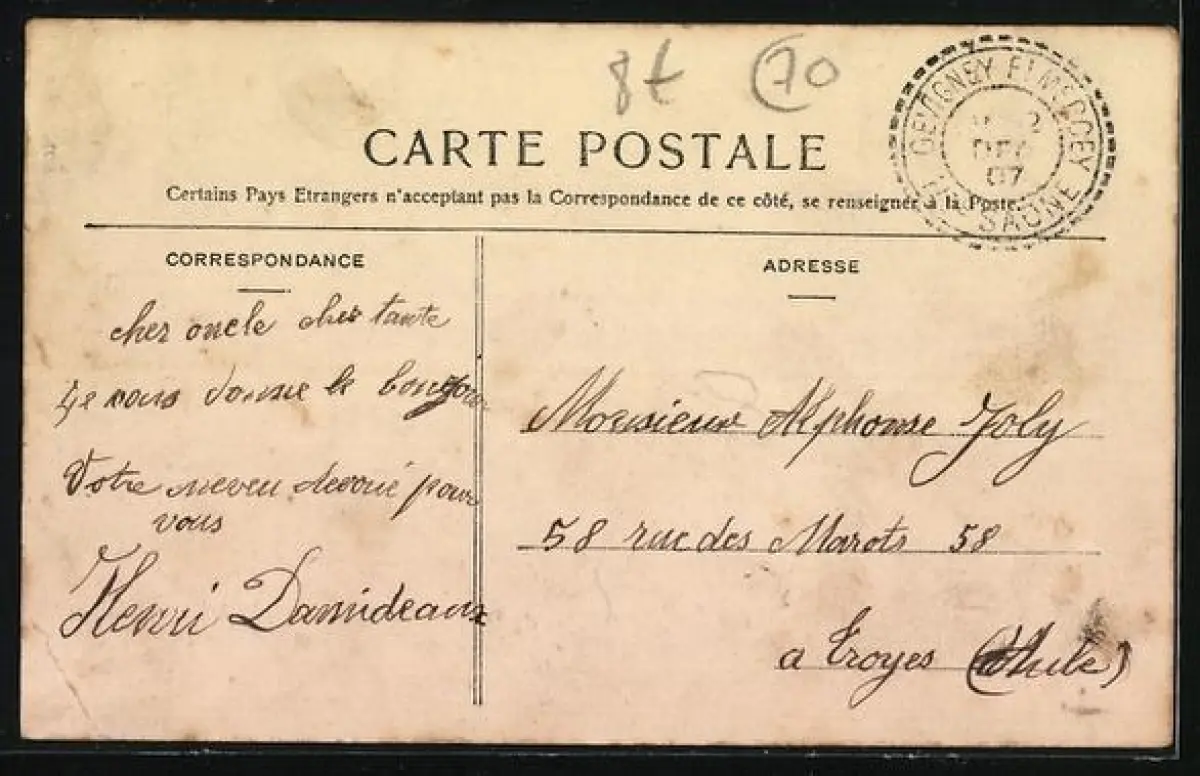 8t 70
CARTE POSTALE
Certains Pays Etrangers n'acceptant pas la Correspondance de ce côté, se renseigner à la Poste.
GEVIGNEY ET MERCEY
2
DEC
07
Hte SAÔNE
CORRESPONDANCE
cher oncle cher tante
Je vous donne le bonjour
Votre neveu devoué pour
vous
Henri Damideaux
ADRESSE
Monsieur Alphonse Joly
58 rue des Marots 58
a Troyes (Aube)